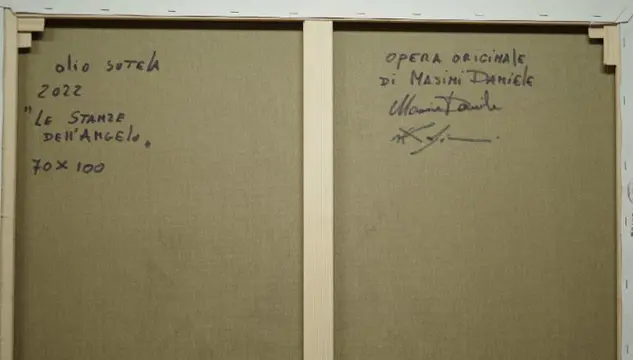 olio su tela
2022
"Le Stanze
dell'Angelo"
70x100
OPERA ORIGINALE
DI MASINI DANIELE
Masini Daniele